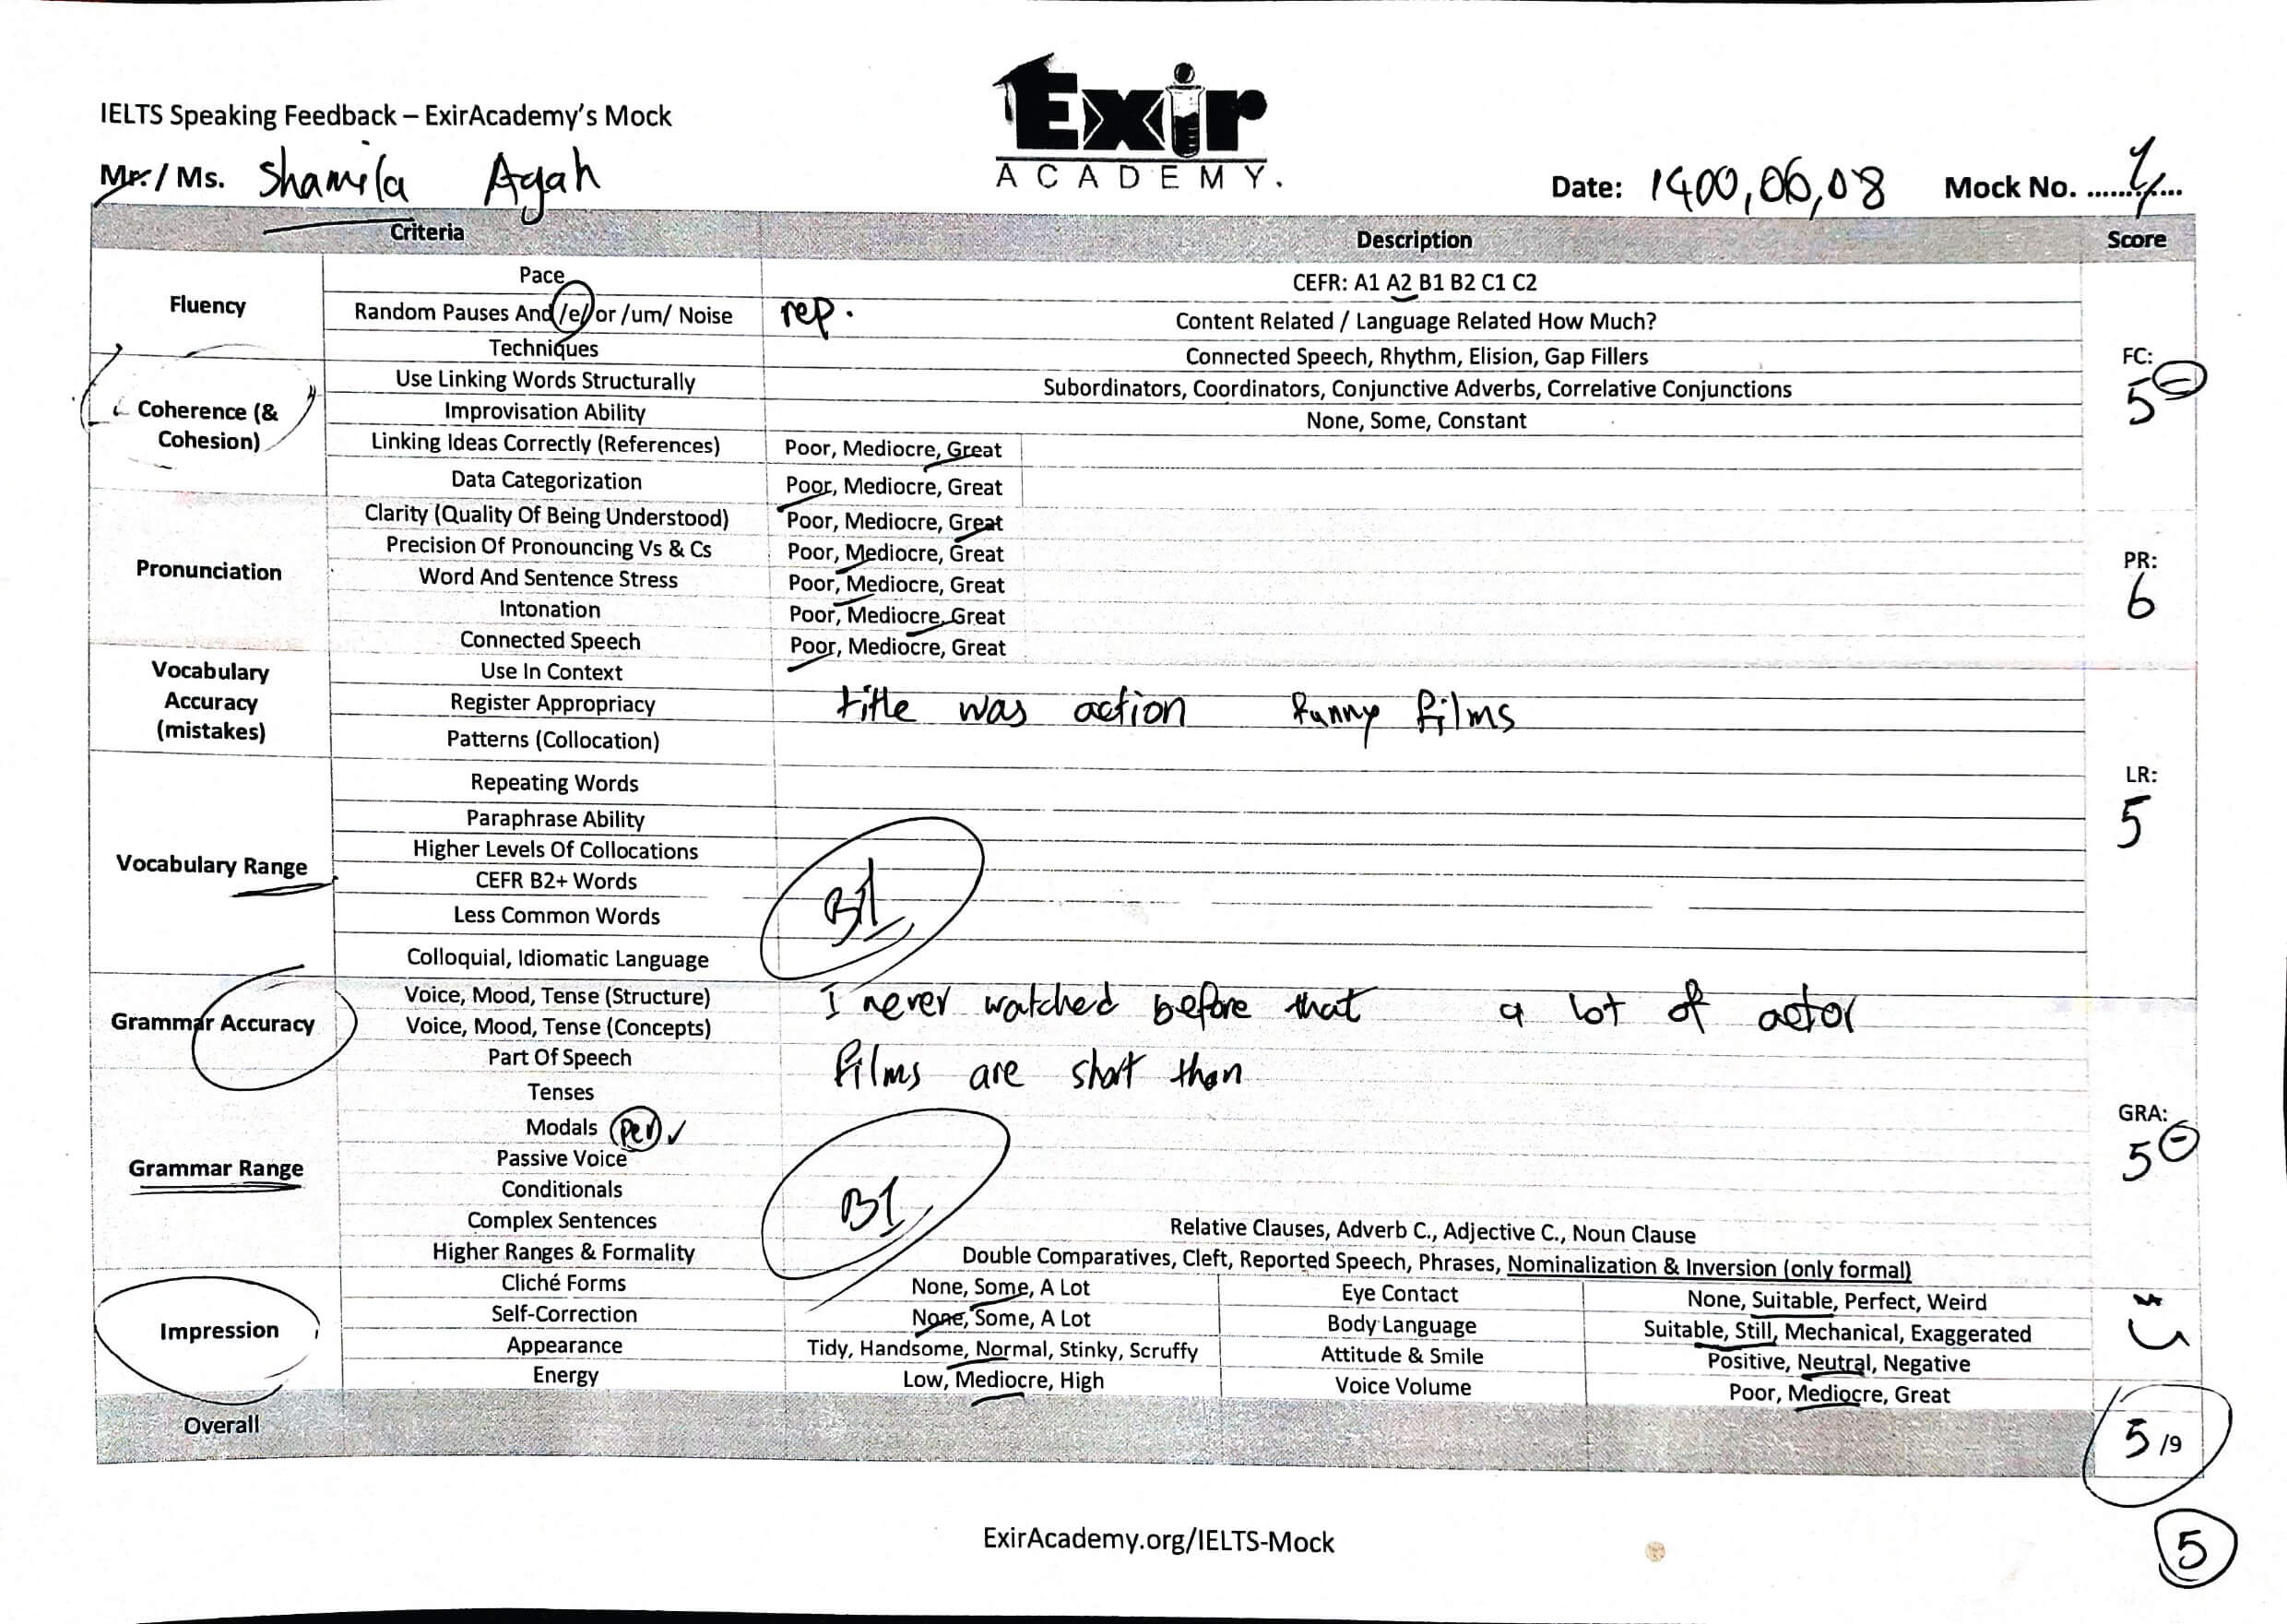 IELTS Speaking Feedback – ExirAcademy's Mock
Exir
ACADEMY.
Mr./ Ms. Shamila Agah
Date: 1400,06,08 Mock No. ............
Criteria Description Score
Fluency
Pace CEFR: A1 A2 B1 B2 C1 C2
Random Pauses And /e/ or /um/ Noise rep. Content Related / Language Related How Much?
Techniques Connected Speech, Rhythm, Elision, Gap Fillers
FC:
5 -
Coherence (& Cohesion)
Use Linking Words Structurally Subordinators, Coordinators, Conjunctive Adverbs, Correlative Conjunctions
Improvisation Ability None, Some, Constant
Linking Ideas Correctly (References) Poor, Mediocre, Great
Data Categorization Poor, Mediocre, Great
Pronunciation
Clarity (Quality Of Being Understood) Poor, Mediocre, Great
Precision Of Pronouncing Vs & Cs Poor, Mediocre, Great
Word And Sentence Stress Poor, Mediocre, Great
Intonation Poor, Mediocre, Great
Connected Speech Poor, Mediocre, Great
PR:
6
Vocabulary
Accuracy
(mistakes)
Use In Context
Register Appropriacy title was action funny films
Patterns (Collocation)
Vocabulary Range
Repeating Words
Paraphrase Ability
Higher Levels Of Collocations
CEFR B2+ Words B1
Less Common Words
Colloquial, Idiomatic Language
LR:
5
Grammar Accuracy
Voice, Mood, Tense (Structure) I never watched before that a lot of actor
Voice, Mood, Tense (Concepts)
Part Of Speech films are short than
Grammar Range
Tenses
Modals Per ✓
Passive Voice
Conditionals B1
Complex Sentences Relative Clauses, Adverb C., Adjective C., Noun Clause
Higher Ranges & Formality Double Comparatives, Cleft, Reported Speech, Phrases, Nominalization & Inversion (only formal)
GRA:
5 -
Impression
Cliché Forms None, Some, A Lot Eye Contact None, Suitable, Perfect, Weird
Self-Correction None, Some, A Lot Body Language Suitable, Still, Mechanical, Exaggerated
Appearance Tidy, Handsome, Normal, Stinky, Scruffy Attitude & Smile Positive, Neutral, Negative
Energy Low, Mediocre, High Voice Volume Poor, Mediocre, Great
Overall 5 /9
ExirAcademy.org/IELTS-Mock
5